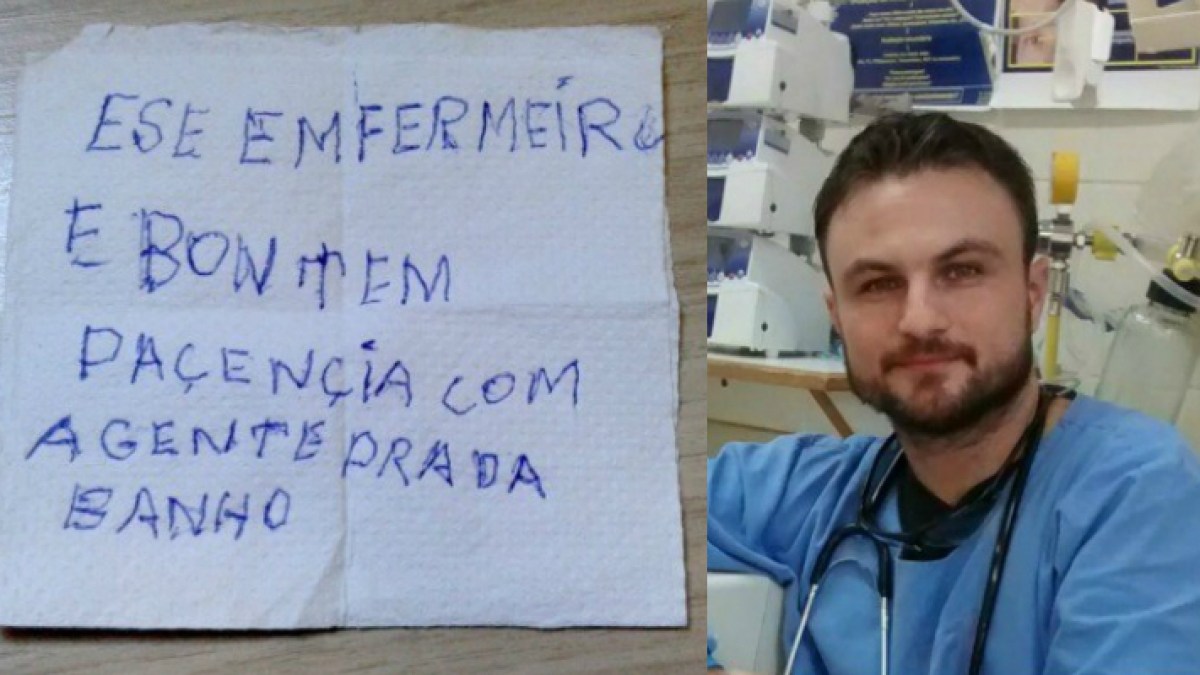 ESE EMFERMEIRO
E BON TEM
PAÇENÇIA COM
AGENTE PRADA
BANHO